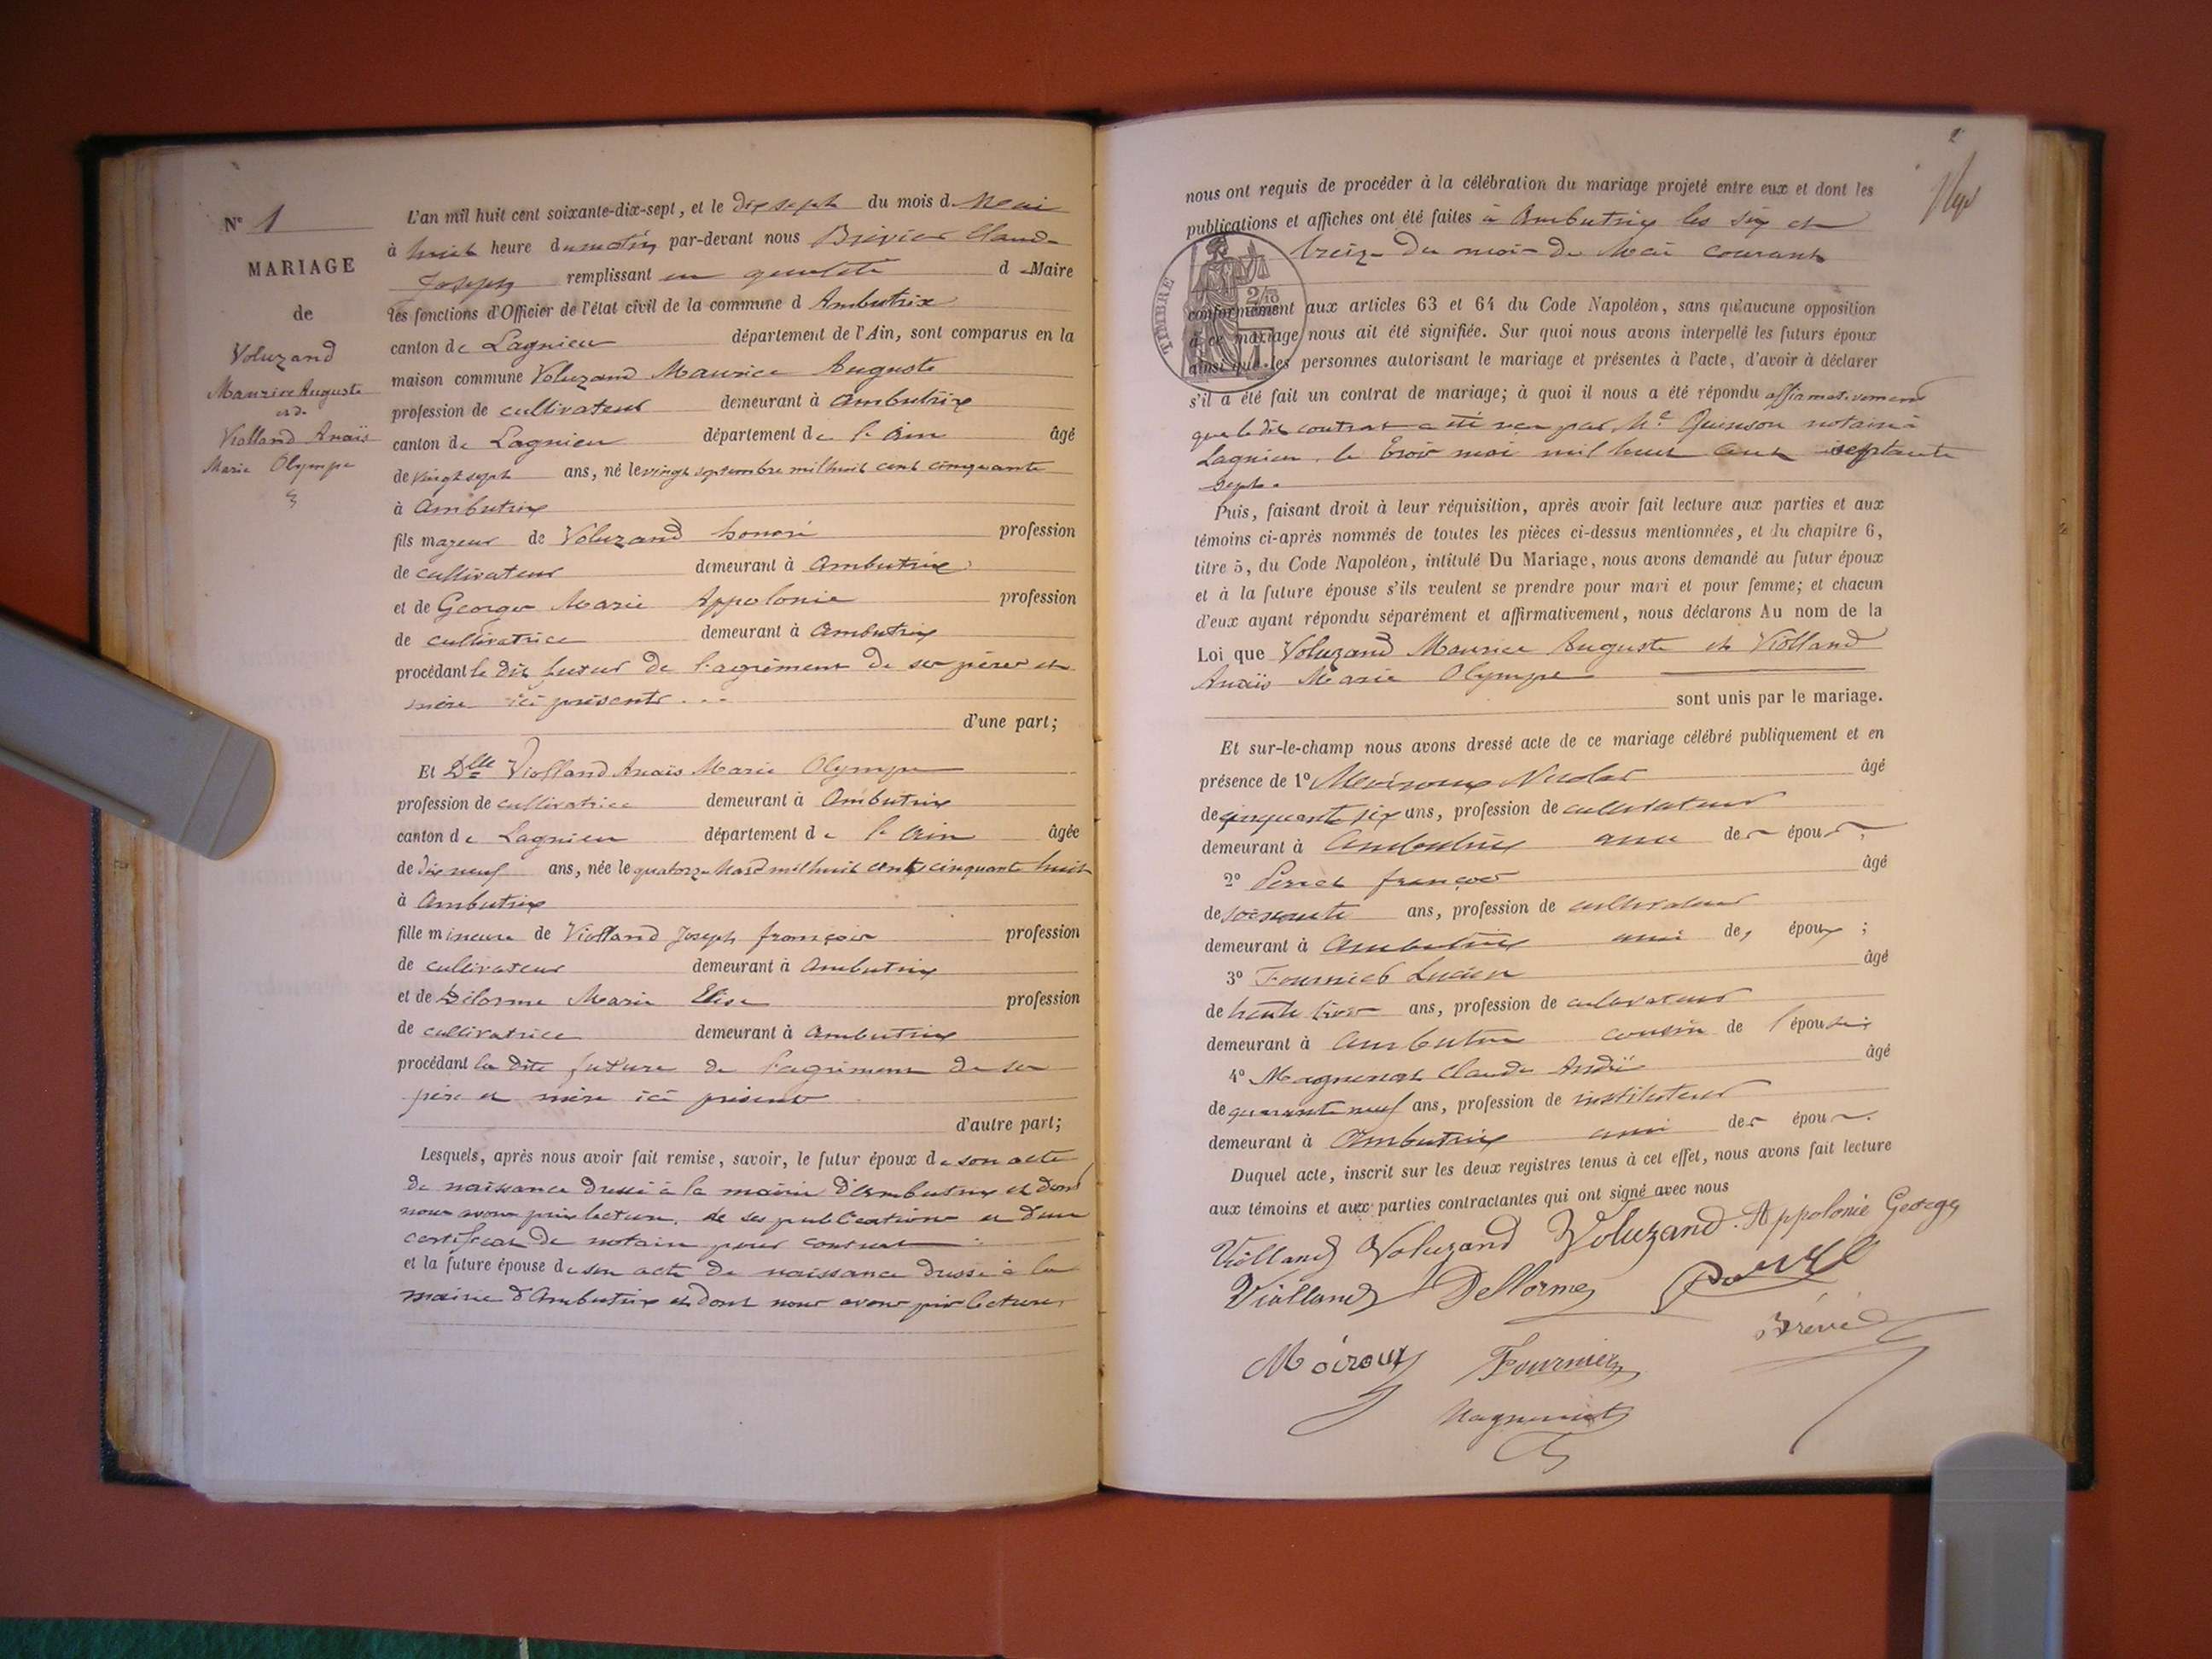 N° 1
MARIAGE
de
Voluzand
Maurice Auguste
et de
Violland Anaïs
Marie Olympe
L'an mil huit cent soixante-dix-sept, et le dix sept du mois de Mai
à huit heure du matin par-devant nous Brévier Claude
Joseph remplissant en qualité de Maire
les fonctions d'Officier de l'état civil de la commune d Ambutrix
canton de Lagnieu département de l'Ain, sont comparus en la
maison commune Voluzand Maurice Auguste
profession de cultivateur demeurant à Ambutrix
canton de Lagnieu département de l'Ain âgé
de vingt sept ans, né le vingt septembre mil huit cent cinquante
à Ambutrix
fils majeur de Voluzand honoré profession
de cultivateur demeurant à Ambutrix
et de George Marie Appolonie profession
de cultivatrice demeurant à Ambutrix
procédant le dit futur de l'agrément de ses pères et
mère ici présents
d'une part;
Et Dlle Violland Anaïs Marie Olympe
profession de cultivatrice demeurant à Ambutrix
canton de Lagnieu département de l'Ain âgée
de dix neuf ans, née le quatorze Mars mil huit cent cinquante huit
à Ambutrix
fille mineure de Violland Joseph françois profession
de cultivateur demeurant à Ambutrix
et de Delorme Marie Elise profession
de cultivatrice demeurant à Ambutrix
procédant la dite future de l'agrément de ses
père et mère ici présents
d'autre part;
Lesquels, après nous avoir fait remise, savoir, le futur époux de son acte
de naissance dressé à la mairie d'Ambutrix et dont
nous avons pris lecture, de ses publications et d'un
certificat de notaire pour contrat
et la future épouse de son acte de naissance dressé à la
mairie d'Ambutrix et dont nous avons pris lecture
2
nous ont requis de procéder à la célébration du mariage projeté entre eux et dont les
publications et affiches ont été faites à Ambutrix les six et
treize du mois de Mai courant
TIMBRE
2/10
conformément aux articles 63 et 64 du Code Napoléon, sans qu'aucune opposition
à ce mariage nous ait été signifiée. Sur quoi nous avons interpellé les futurs époux
ainsi que les personnes autorisant le mariage et présentes à l'acte, d'avoir à déclarer
s'il a été fait un contrat de mariage; à quoi il nous a été répondu affirmativement
que le dit contrat a été reçu par Me Quinson notaire à
Lagnieu le trois mai mil huit cent septante
sept.
Puis, faisant droit à leur réquisition, après avoir fait lecture aux parties et aux
témoins ci-après nommés de toutes les pièces ci-dessus mentionnées, et du chapitre 6,
titre 5, du Code Napoléon, intitulé Du Mariage, nous avons demandé au futur époux
et à la future épouse s'ils veulent se prendre pour mari et pour femme; et chacun
d'eux ayant répondu séparément et affirmativement, nous déclarons Au nom de la
Loi que Voluzand Maurice Auguste et Violland
Anaïs Marie Olympe
sont unis par le mariage.
Et sur-le-champ nous avons dressé acte de ce mariage célébré publiquement et en
présence de 1° Nicolas âgé
de cinquante six ans, profession de cultivateur
demeurant à Ambutrix ami des époux;
2° Perret françois âgé
de soixante ans, profession de cultivateur
demeurant à Ambutrix ami des époux;
3° Fournier Lucien âgé
de trente trois ans, profession de cultivateur
demeurant à Ambutrix cousin de l'épouse;
4° Magneniat Claude André âgé
de quarante neuf ans, profession de instituteur
demeurant à Ambutrix ami des époux.
Duquel acte, inscrit sur les deux registres tenus à cet effet, nous avons fait lecture
aux témoins et aux parties contractantes qui ont signé avec nous
Violland Voluzand Voluzand Appolonie George
Violland Dellorme
Moiroux Fournier
Magneniat